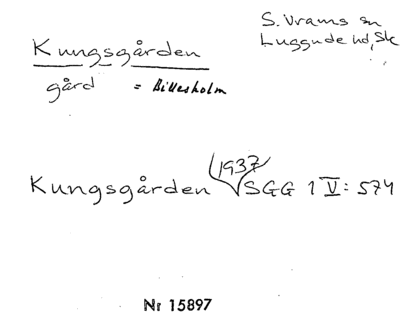 Kungsgården
S. Vrams sn
Luggude hd, Sk
gård = Billesholm
Kungsgården 1937 SGG 1 V: 574
Nr 15897